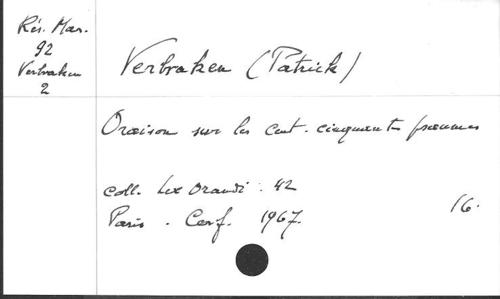 Rés. Mar.
92
Verbraken
2
Verbraken (Patrick)
Oraison sur les cent-cinquante psaumes
coll. Lex Orandi : 42
Paris . Cerf. 1967.
16.